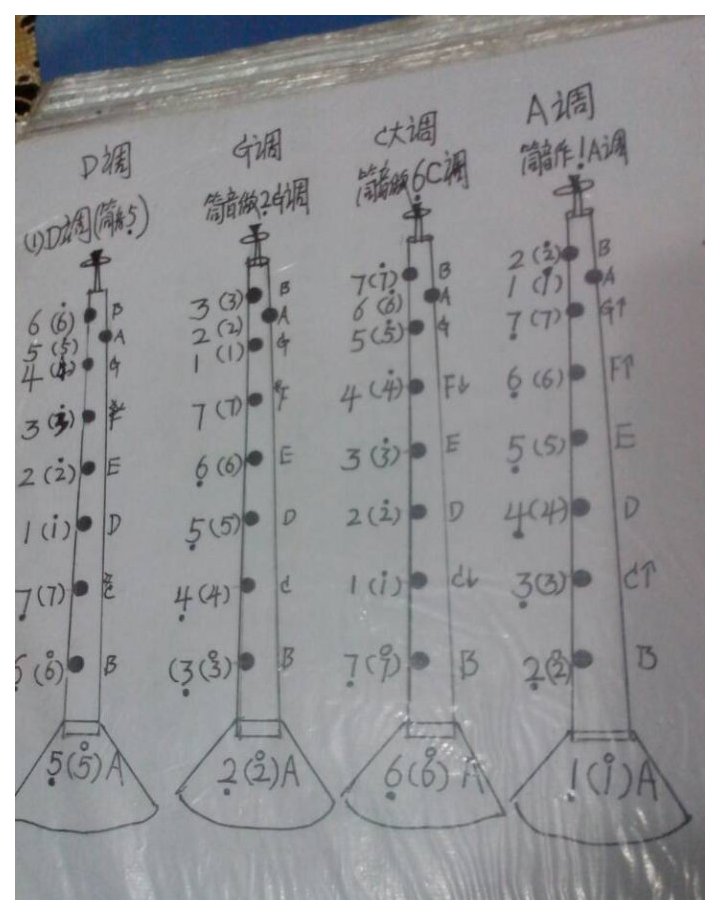 D调
(1)D调(筒音5̣)
6 (6̇) B
5 (5̇) A
4 (4̇) G
3 (3̇) #F
2 (2̇) E
1 (1̇) D
7̣ (7) #C
6̣ (6̊) B
5̣ (5̊) A
G调
筒音做2̣G调
3 (3) B
2 (2) A
1 (1) G
7 (7) #F
6̣ (6) E
5̣ (5) D
4̣ (4) C
(3̣ (3̊) B
2̣ (2̊) A
C大调
筒音做6̣C调
7 (7̇) B
6 (6̇) A
5 (5̇) G
4 (4̇) F↓
3 (3̇) E
2 (2̇) D
1 (1̇) C↓
7̣ (7̊) B
6̣ (6̊) A
A调
筒音作1̣A调
2 (2̊) B
1 (1̊) A
7̣ (7) G↑
6̣ (6) F↑
5̣ (5) E
4̣ (4) D
3̣ (3) C↑
2̣ (2̊) B
1̣ (1̊) A